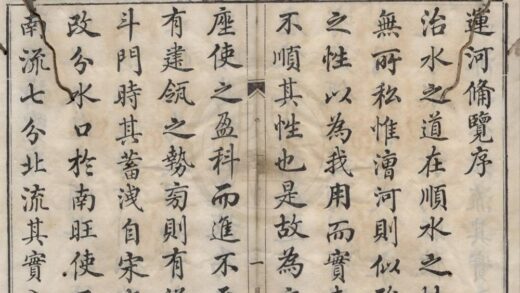 運河備覽序
治水之道在順水之
無所私惟漕河則似
之性以為我用而實
不順其性也是故為
一
座使之盈科而進不
有建瓴之勢則有
斗門時其蓄洩自宋
改分水口於南旺使
南流七分北流其實